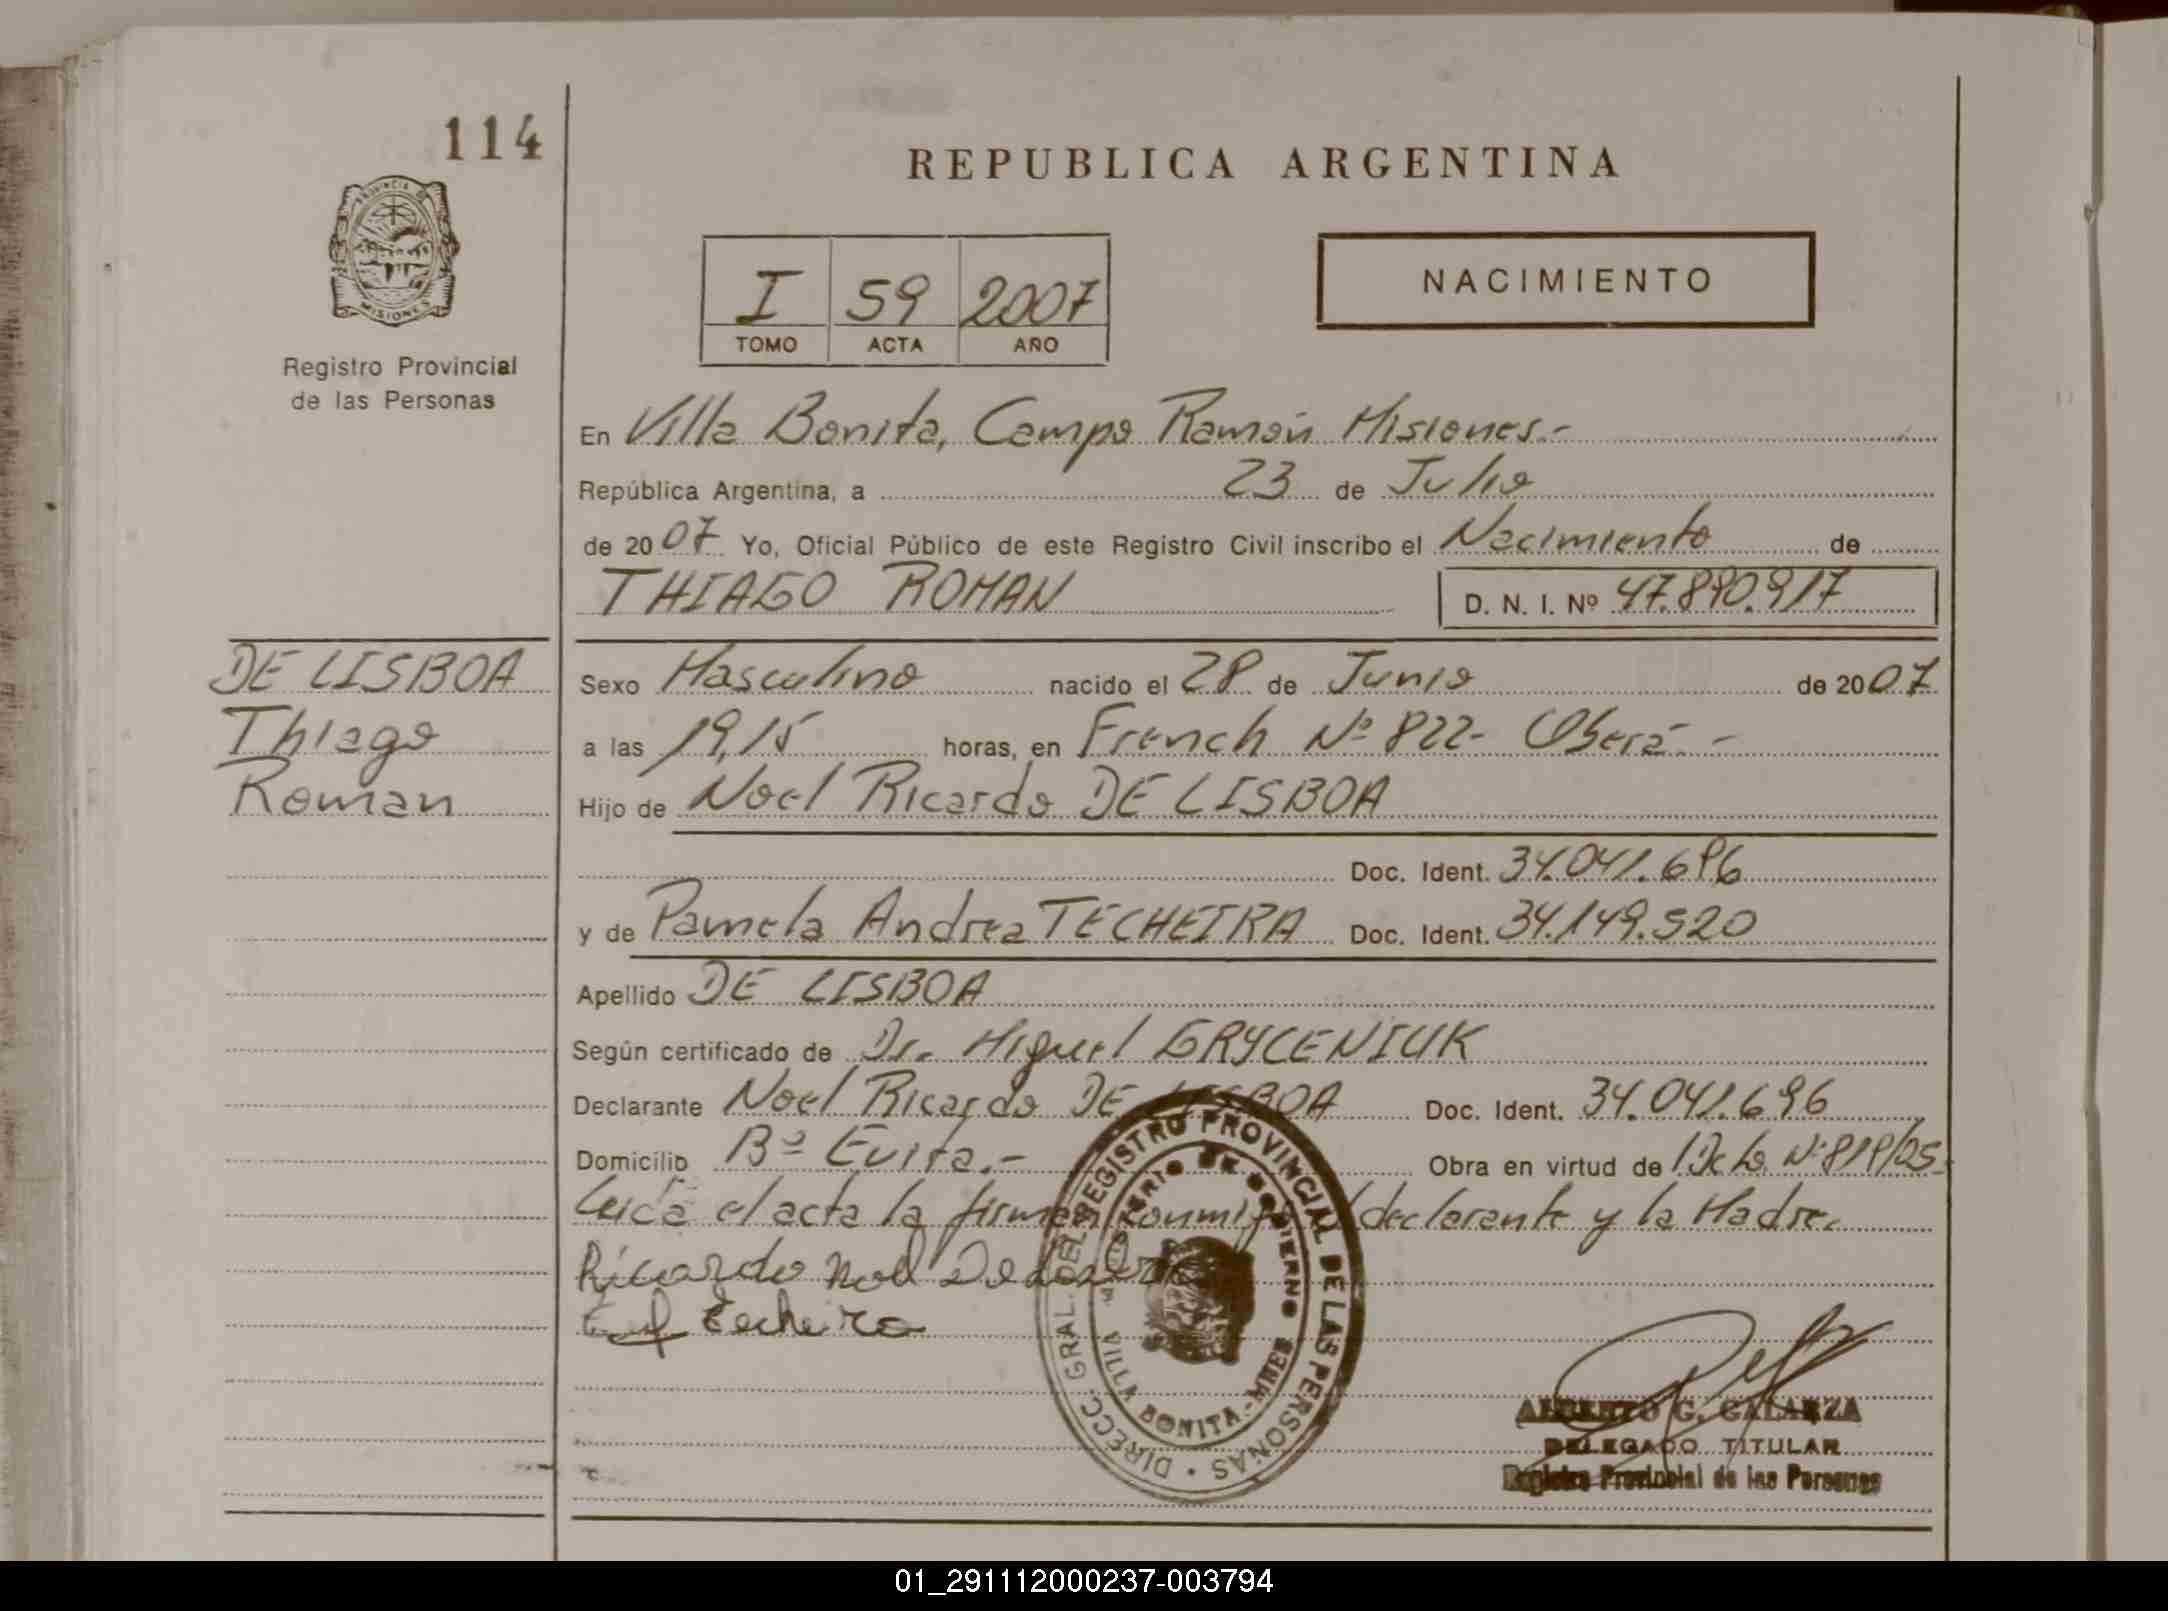 114
REPUBLICA ARGENTINA
PROVINCIA DE MISIONES
Registro Provincial
de las Personas
I 59 2007
TOMO ACTA AÑO
NACIMIENTO
En Villa Bonita, Campo Ramón Misiones.-
República Argentina, a 23 de Julio
de 2007 Yo, Oficial Público de este Registro Civil inscribo el Nacimiento de
THIAGO ROMAN D. N. I. Nº 47.890.917
DE LISBOA
Thiago
Roman
Sexo Masculino nacido el 28 de Junio de 2007
a las 19,15 horas, en French Nº 822- Oberá.-
Hijo de Noel Ricardo DE LISBOA
Doc. Ident. 34.041.696
y de Pamela Andrea TECHEIRA Doc. Ident. 34.149.520
Apellido DE LISBOA
Según certificado de Dr. Miguel GRYCENIUK
Declarante Noel Ricardo DE LISBOA Doc. Ident. 34.041.696
Domicilio Bº Evita.- Obra en virtud de Dcto Nº 818/05-
Leída el acta la firman conmigo el declarante y la Madre.
Ricardo Noel De Lisboa
Techeira
DIRECC. GRAL. DEL REGISTRO PROVINCIAL DE LAS PERSONAS
MINISTERIO DE GOBIERNO
VILLA BONITA.-MNES
G. GALARZA
DELEGADO TITULAR
Registro Provincial de las Personas
01_291112000237-003794